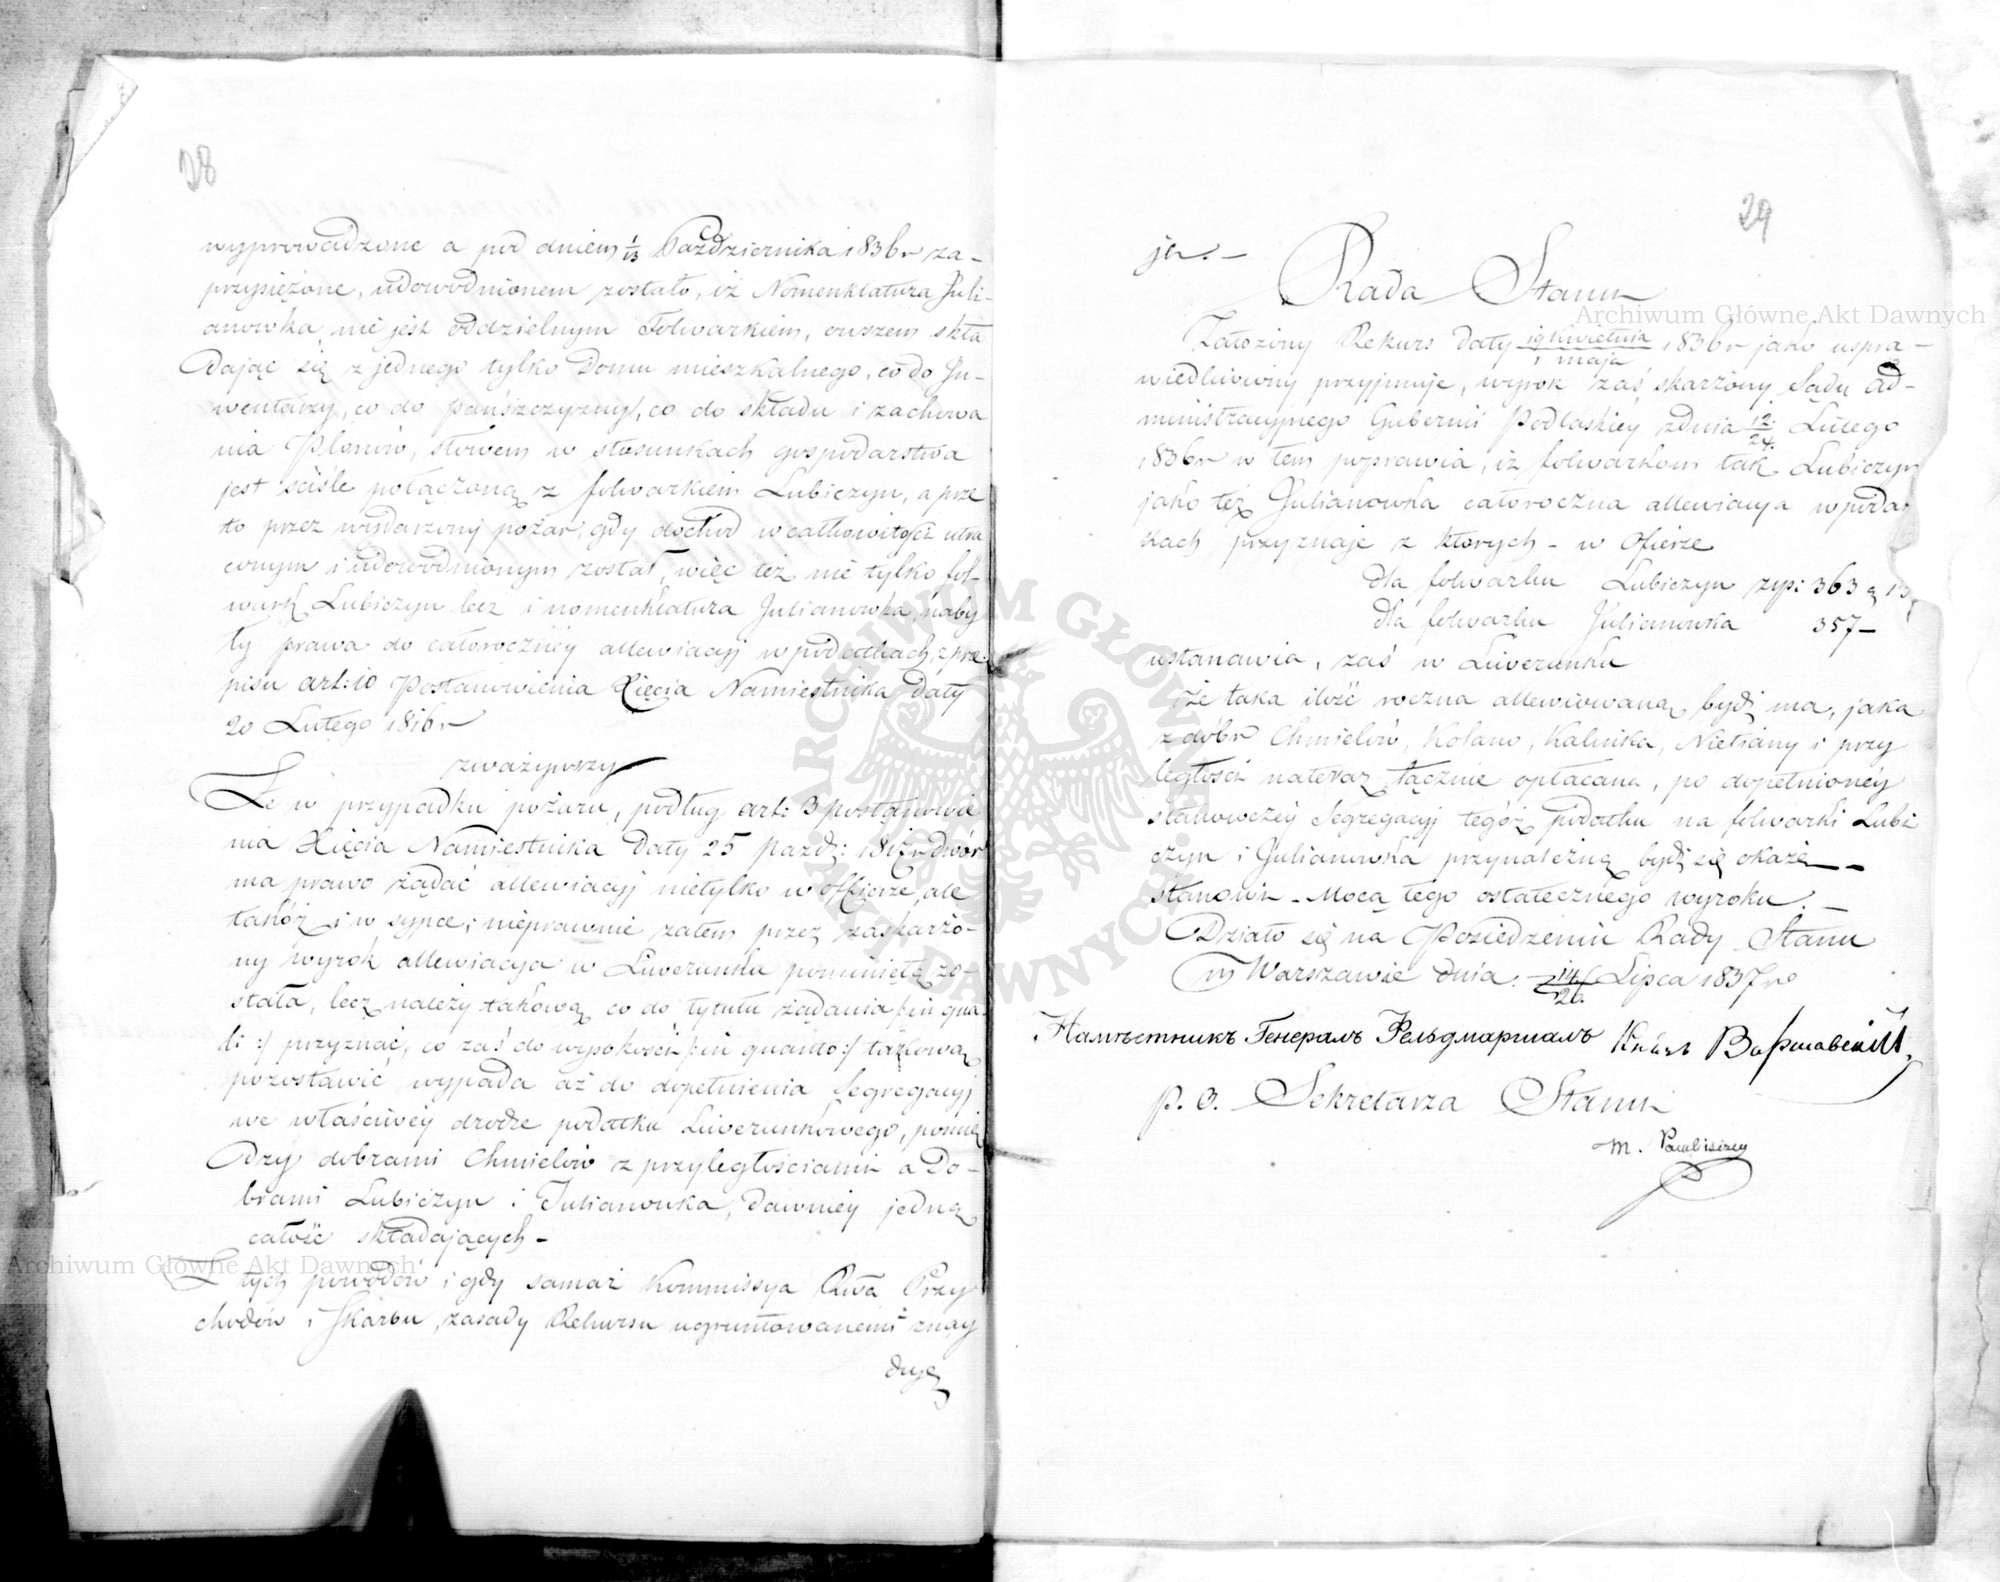 28
wyprowadzone a pod dniem 1/13 Października 1836 r za-
przysiężone, udowodnionem zostało, iż Nomenklatura Juli-
anowka nie jest oddzielnym Folwarkiem, owszem skła
dając się z jednego tylko Domu mieszkalnego, co do In-
wentarzy, co do pańszczyzny, co do składu i zachowa
nia Plonów, słowem w stosunkach gospodarstwa
jest ściśle połączoną z folwarkiem Lubiczyn, a prze
to przez wydarzony pożar, gdy dochód w całkowitości utra
conym i udowodnionym został, więc też nie tylko fol-
wark Lubiczyn lecz i nomenklatura Julianowka, naby
ły prawa do całoroczney allewiacyj w podatkach, z prze-
pisu art: 10 Postanowienia Xięcia Namiestnika daty
20 Lutego 1816 r
zważywszy
Że w przypadku pożaru, podług art: 3 postanowie
nia Xięcia Namiestnika Daty 25 Pazdz: 1817 r dwór
ma prawo żądać allewiacyj nietylko w Offierze, ale
takoż i w sypce; nieprawnie zatem przez zaskarżo-
ny wyrok allewiacya w Liwerunku pominiętą zo-
stała, lecz należy takową co do tytułu żądania /: in qua-
li :/ przyznać, co zaś do wysokości /: in quanto :/ takową
pozostawić wypada aż do dopełnienia Segregacyj
we właściwey drodze podatku Liwerunkowego, pomię
dzy dobrami Chmielów z przyległościami a Do-
brami Lubiczyn i Julianowka, dawniey jedną
całość składających -
Z tych powodów i gdy samaż Kommissya Rwa Przy
chodów i Skarbu, zasady Rekursu ugruntowanemi znay
duje
29
je. -
Rada Stanu
Założony Rekurs daty 19 Kwietnia / 1 maja 1836 r jako uspra-
wiedliwiony przyjmuje, wyrok zaś skarżony Sądu Ad-
ministracyjnego Gubernii Podlaskiey z dnia 12/24 Lutego
1836 r w tem poprawia, iż folwarkom tak Lubiczyn
jako też Julianowka całoroczna allewiacya w podat
kach przyznaje z których - w Ofierze
dla folwarku Lubiczyn złp: 363 g 13
dla folwarku Julianowka 357 -
ustanawia, zaś w Liwerunku
Że taka ilość roczna allewiowaną bydź ma, jaka
z dóbr Chmielów, Kolano, Kalinka, Nielsiany i przy
ległości nateraz łącznie opłacana, po dopełnioney
stanowczey Segregacyj tegoż podatku na folwarki Lubi
czyn i Julianowka przynależną bydź się okaże -
stanowi - Mocą tego ostatecznego wyroku. -
Działo się na Posiedzeniu Rady Stanu
w Warszawie dnia 14/26 Lipca 1837 r
Намѣстникъ Генералъ Фельдмаршалъ Князь Варшавскій.
p. o. Sekretarza Stanu
M.
Archiwum Główne Akt Dawnych
Archiwum Główne Akt Dawnych
ARCHIWUM GŁÓWNE AKT DAWNYCH